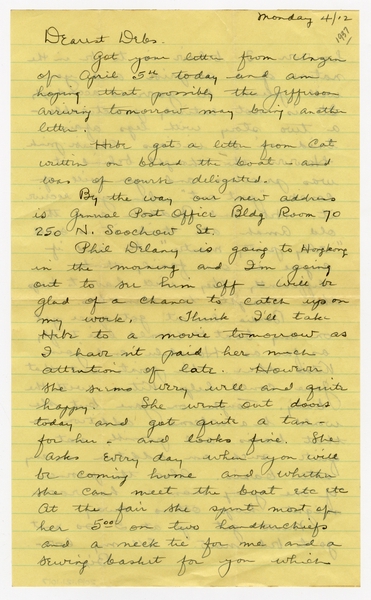 Monday 4/12
1937
Dearest Debs.
Got your letter from
of April 5th today and am
hoping that possibly the Jefferson
arriving tomorrow may bring another
letter.
Hebe got a letter from Cat
written on board the boat and
was of course delighted.
By the way our new address
is General Post Office Bldg Room 70
250 N. Soochow St.
Phil Delany is going to Hongkong
in the morning and I'm going
out to see him off - Will be
glad of a chance to catch up on
my work. Think I'll take
Hebe to a movie tomorrow as
I haven't paid her much
attention of late. However
she seems very well and quite
happy. She went out doors
today and got quite a tan -
for her - and looks fine. She
asks every day when you will
be coming home and whether
she can meet the boat etc etc
At the fair she spent most of
her 5.00 on two handkerchiefs
and a neck tie for me and a
sewing basket for you which